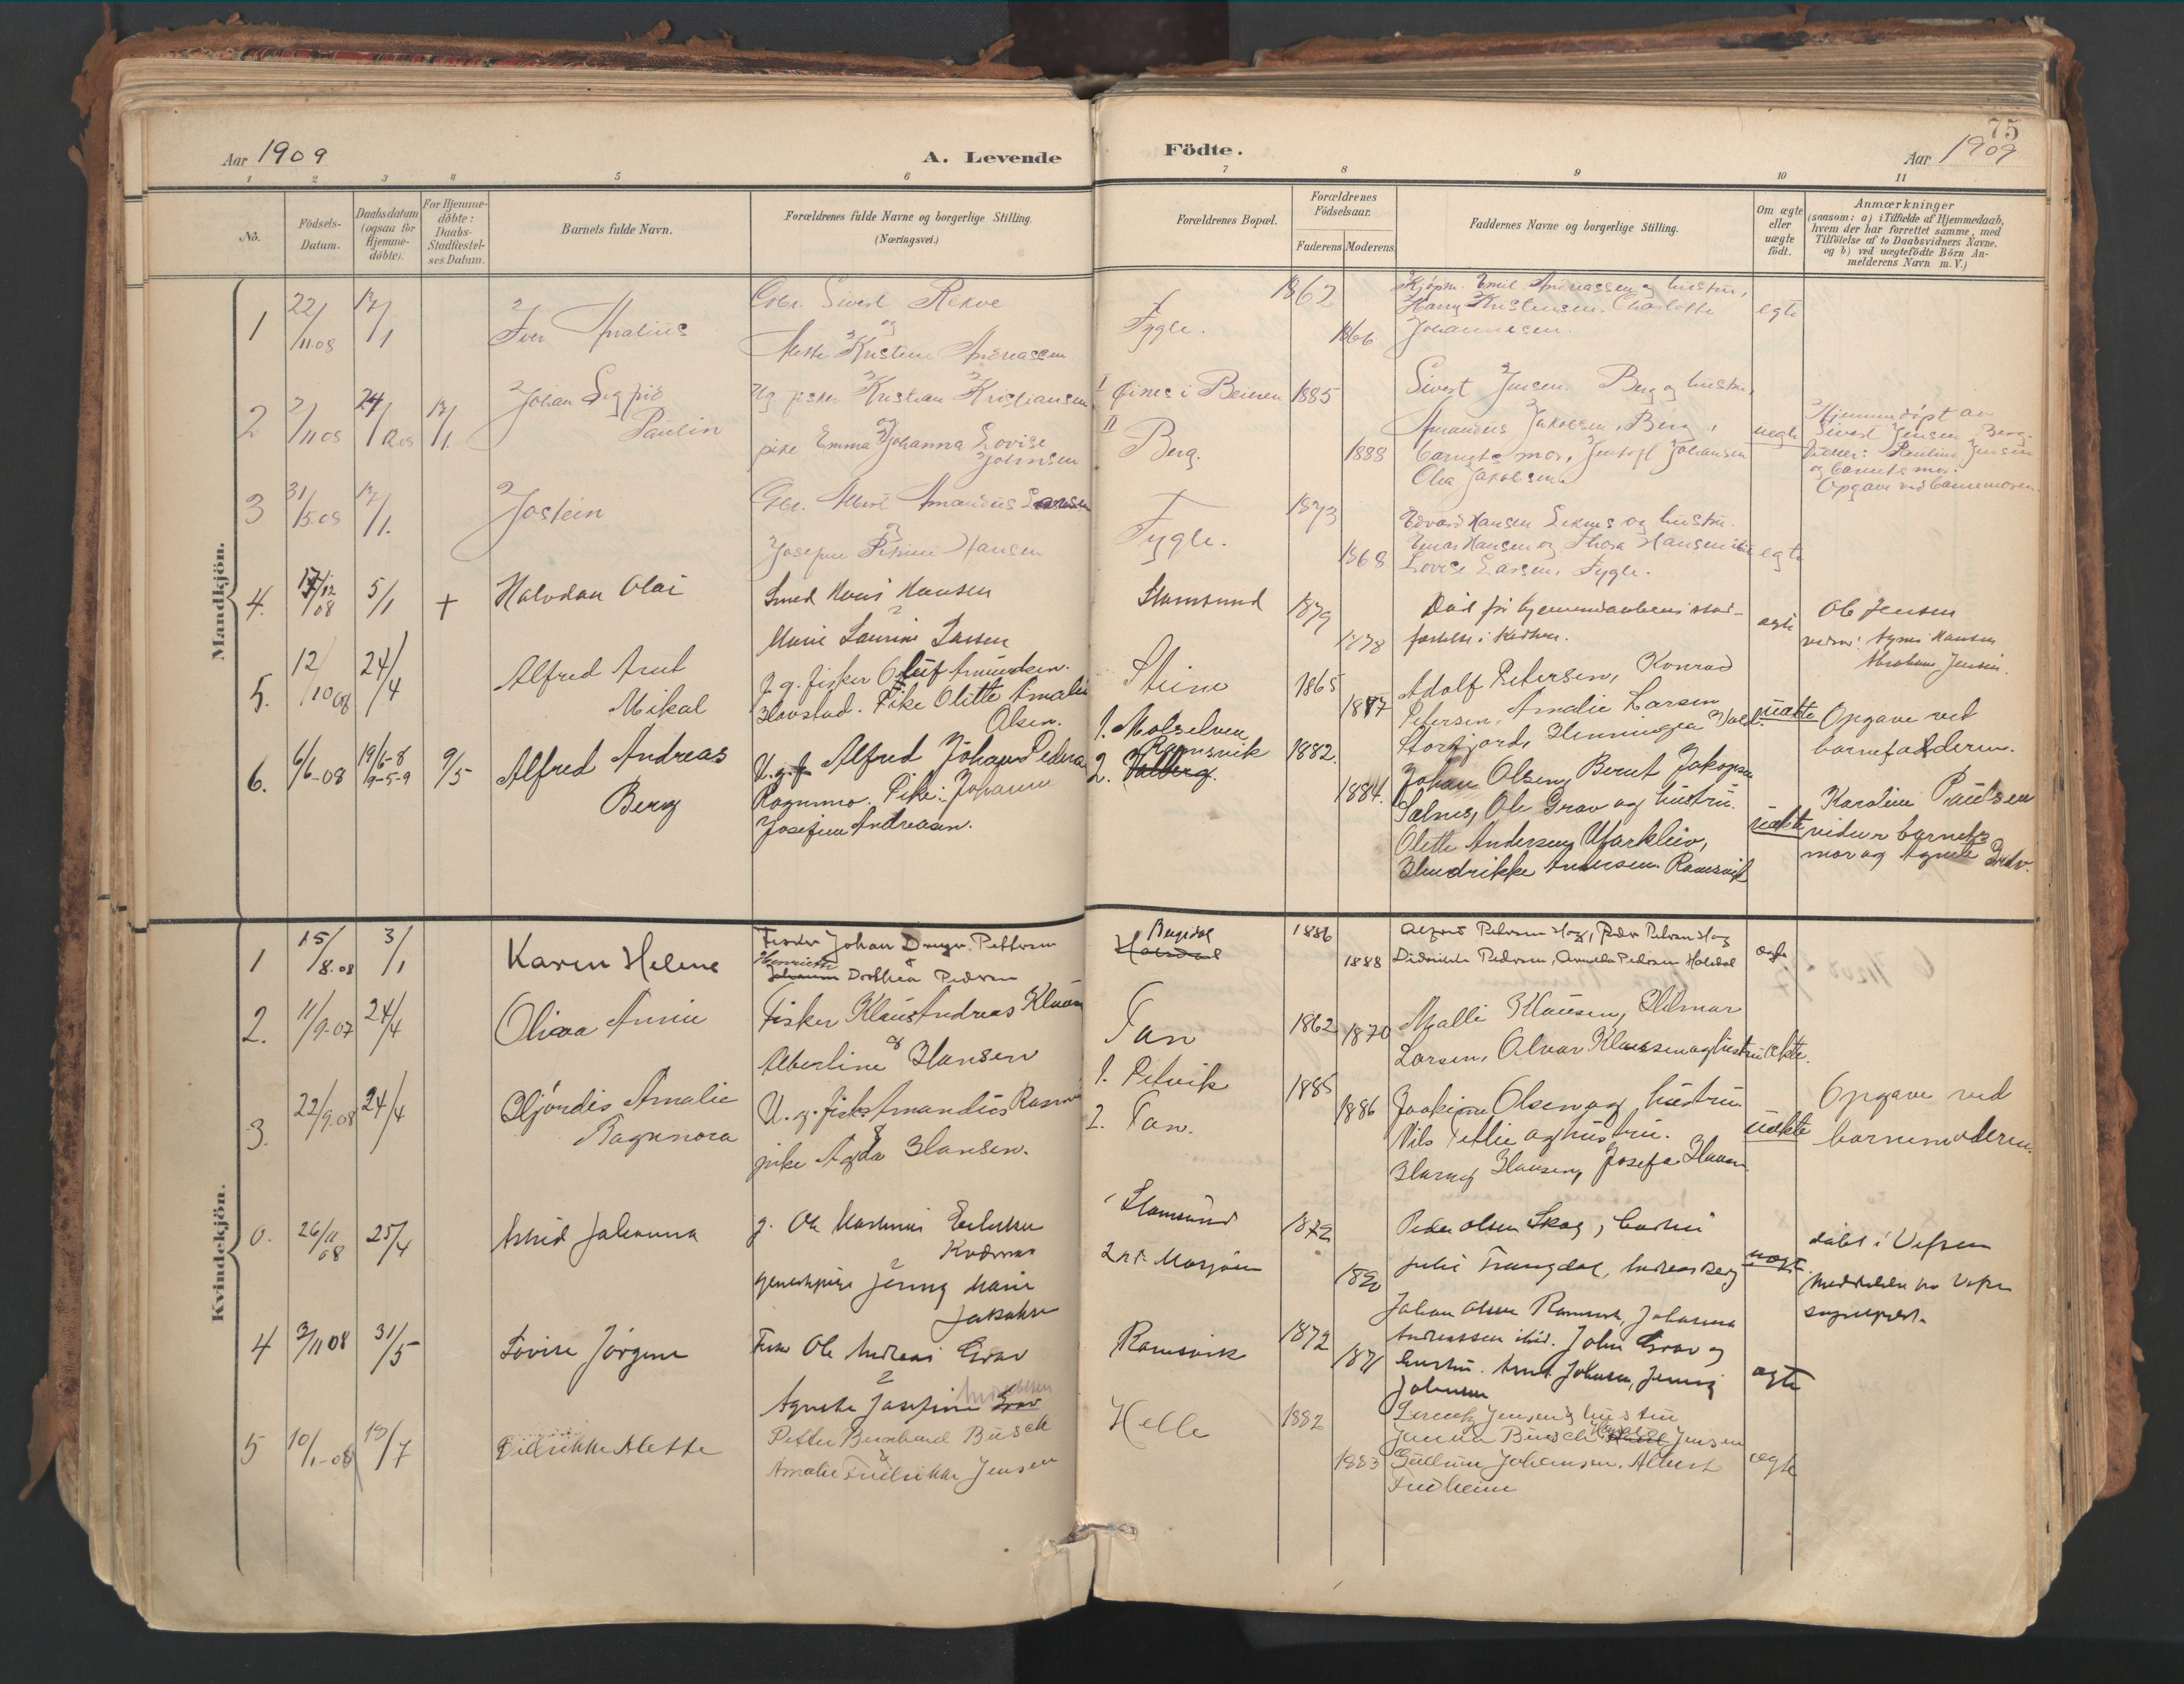 75
Aar 1909
A. Levende
Födte.
Aar 1909
1 2 3 4 5 6 7 8 9 10 11
No.
Födsels-
Datum.
Daabsdatum
(ogsaa for
Hjemme-
döbte).
For Hjemme-
döbte:
Daabs-
Stadfæstel-
ses Datum.
Barnets fulde Navn.
Forældrenes fulde Navne og borgerlige Stilling.
(Næringsvei.)
Forældrenes Bopæl.
Forældrenes
Födselsaar.
Faderens Moderens
Faddernes Navne og borgerlige Stilling.
Om ægte
eller
uægte
födt.
Anmærkninger
(saasom: a) i Tilfælde af Hjemmedaab,
hvem der har forrettet samme, med
Tilföielse af to Daabsvidners Navne,
og b) ved uægtefödte Börn An-
melderens Navn m. V.)
Mandkjön.
1 22/11 08 17/1 Iver Analius
Sivert Rekve
og
Mette Kristine Andreassen
Fygle.
1862
1866
Kjøpm. Emil Andreassen og hustru,
Harry Kristensen, Charlotte
Johannesen.
egte
2 2/11 08 24/12 08 17/1 Johan Sigfrid
Paulin
Ug fisker Kristian Kristiansen
og
pike Emma Johanna Lovise
Johnsen
I Øines i Beieren
II Berg.
1885
1888
Sivert Jensen Berg og hustru,
Amandus Jakobsen, Berg,
barnets mor, Jentoft Johansen
Olea Jakobsen
uegte
Hjemmedøpt av
Sivert Jensen Berg.
Vitner: Pauline Jensen
og barnets mor.
Opgave ved barnemoren.
3 31/5 08 17/1. Jostein
Gbr. Albert Amandus Larsen
og
Josefine Petrine Hansen
Fygle.
1873
1868
Edvard Hansen Leknes og hustru.
Einar Hansen og Thora Hansen ibid
Lovise Larsen, Fygle.
egte
4. 17/12 08 5/1 + Halvdan Olai
Smed Hans Hansen
Marie Laurine Larsen
Stamsund
1879
1878
Død før hjemmedaabens stad-
fæstelse i kirken.
ægte
Ole Jensen
vidner: Agnes Hansen
Abraham Jensen.
5. 12/10 08 24/4 Alfred Arnt
Mikal
U. g. fisker Oluf Amundsen.
Pike Olette Amalie
Olsen.
Steine
1865
1887
Adolf Petersen, Konrad
Petersen, Amalie Larsen
Storfjord, Henningea
uækte
Opgave ved
barnefaderen.
6. 6/6-08 19/6-8
9-5-9
9/5 Alfred Andreas
Berg
U.g.f. Alfred Johan Pedersen
Ragnmo. Pike: Johanne
Josefine Andreasen.
1. Molselven
Ramsvik
2. Valberg.
1882.
1884.
Johan Olsen, Bernt Jakopsen
Sælnes, Ole Grav og hustru.
Olette Andersen, Markleiv,
Hendrikke Andersen Ramsvik
uækte
Karoline Paulsen
vidner barnets
mor og Agnete Grav.
Kvindekjön.
1 15/8.08 3/1 Karen Helene
Fisker Johan Dreyer Pettersen
Henriette
Johanna Dorthea Pedersen
Bergedal
Holsdal
1886
1888
Alfred Pedersen Hag, Peder Pedersen Hag
Didrikke Pedersen, Annella Pedersen Holsdal
ægte
2. 11/9-07 24/4 Olivia Annie
Fisker Klaus Andreas Klausen
og
Alberline Hansen
Tan
1862
1870
Malli Klausen, Hilmar
Larsen, Alvar Klaussen og hustru
ækte.
3. 22/9.08 24/4 Hjördis Amalie
Ragnnora
U. g. fisker Amandus Rasmus
&
pike Agda Hansen.
1. Petvik
2. Tan.
1885
1886
Joakim Olsen og hustru
Nils Tetlie og hustru.
Harry Hansen, Josefa Hansen
uækte
Opgave ved
barnemoderen.
0. 26/11 08 25/4 Astrid Johanna
g. Ole Martinus Eriksen
Kvdnnes
Jenny Marie
Jakobsen
1 Stamsund
2 Mosjøen
1872
Peder Olsen Skog, hustru
Julie Trangdal, Andreas Berg
uægte
døbt i Vefsen
meddelelse fra Vefsn
sogneprest.
4 3/11 08 31/5 Lovise Jörgine
Fisker Ole Andreas Grav
&
Agnethe Josefine Grav
Andreassen
Ramsvik
1872
1871
Johan Olsen Ramsvik, Johanna
Andreassen ibid. John Grav og
hustru. Arnt Johnsen, Jenny
Johnsen
ægte
5 10/1-08 19/7 Didrikke Alette
Petter Bernhard Busch
&
Amalie Fredrikke Jensen
Helle
1882
1883
Lorentz Jensen og hustru
Janna Busch, Jensen
Gudrun Johansen, Albert
Fredheim
egte